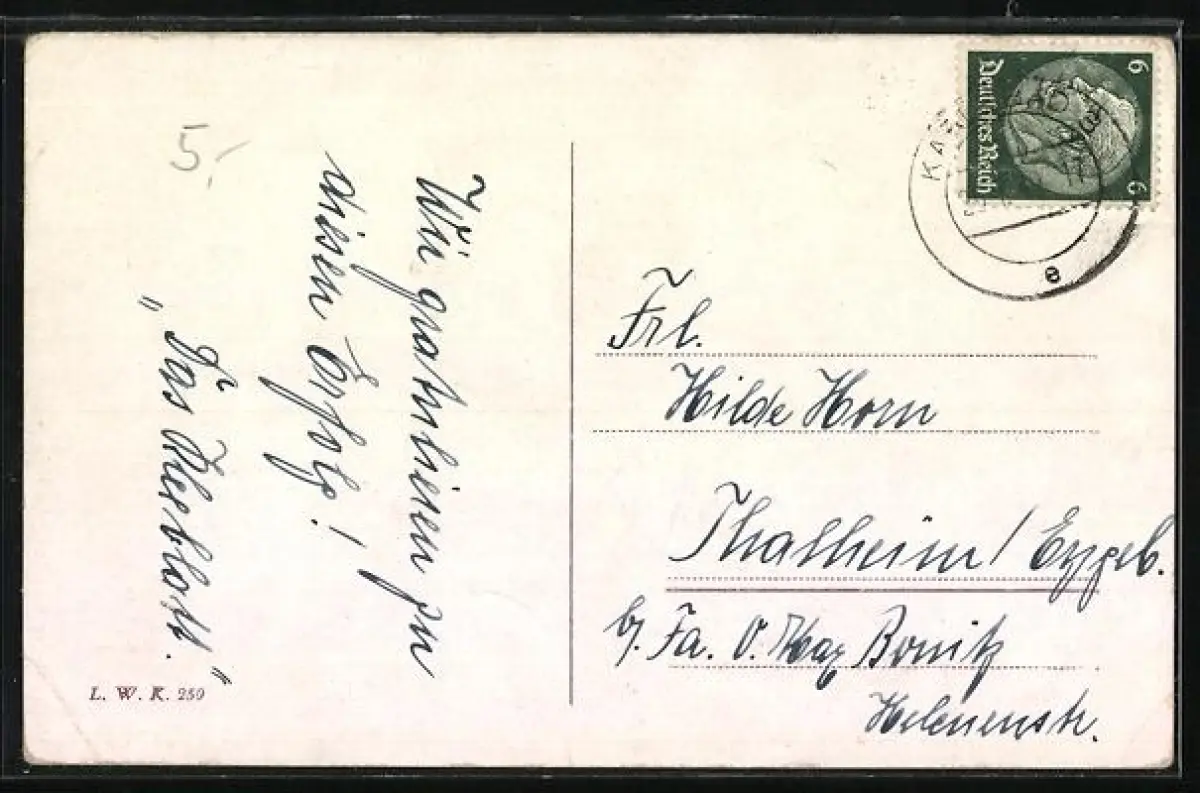 5,-
Wir gratulieren zu
diesen Erfolg!
„Das Kleeblatt."
L. W. K. 259
Deutsches Reich
6
6
e
Frl.
Hilde Horn
Thalheim/Erzgeb.
b/. Fa. O. Max Bonitz
Helenenstr.